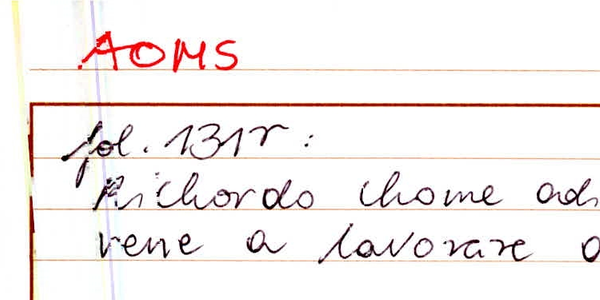 AOMS
fol. 131r:
Richordo chome adi
vene a lavorare